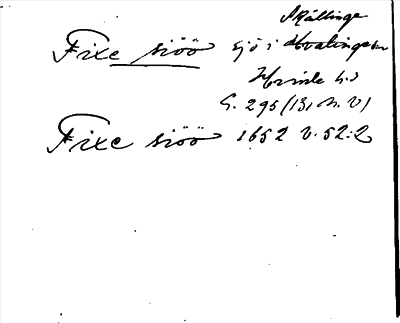 Skällinge
Fixe siöö sjö i Hvalinge sn
Himle hd
G. 295 (13, N. V)
Fixe siöö 1652 V. 52:2